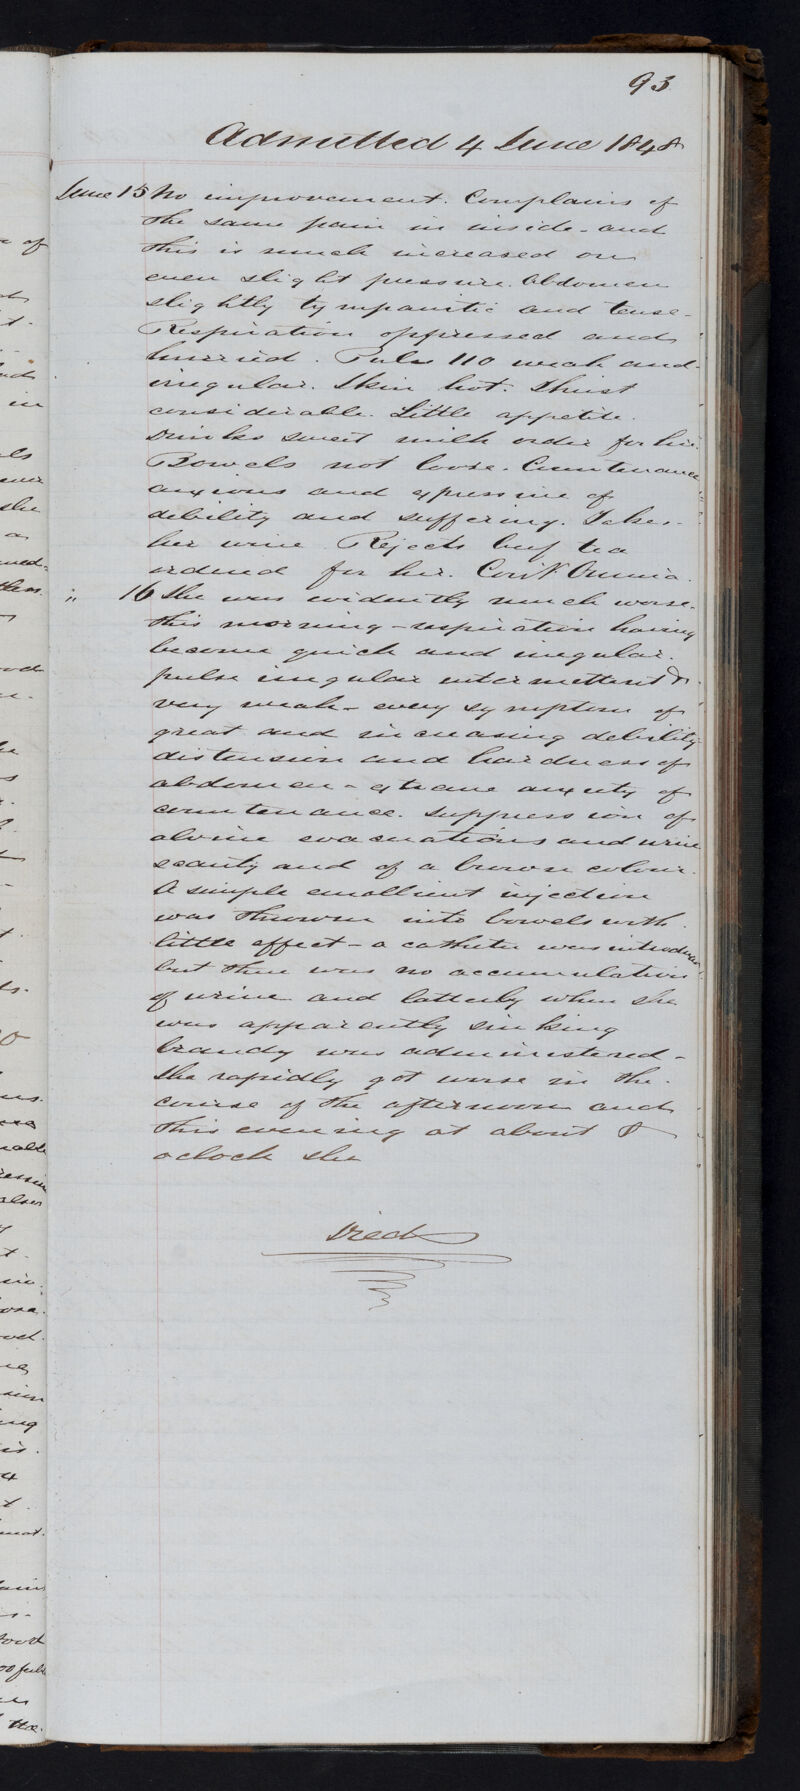 93
Admitted 4 June 1848
June 15 No improvement. Complains of
the same pain in inside - and
this is much increased on
even slight pressure. Abdomen
slightly tympanitic and tense -
Respiration oppressed and
hurried. Pulse 110 weak and
irregular. Skin hot. Thirst
considerable. Little appetite.
Drinks sweet milk order for her.
Bowels not loose. Countenance
anxious and expressive of
debility and suffering. Takes
her wine. Rejects beef tea
ordered for her. Contr Omnia.
" 16 She was evidently much worse
this morning - respiration having
become quick and irregular.
pulse irregular intermittent &
very weak - every symptom of
great and increasing debility
distension and hardness of
abdomen - extreme anxiety of
countenance. Suppression of
alvine evacuations and urine
scanty and of a brown colour.
A simple emollient injection
was thrown into bowels with
little effect - a catheter was introduced
but there was no accumulation
of urine and latterly when she
was apparently sinking
brandy was administered -
She rapidly got worse in the
course of the afternoon and
this evening at about 8
oclock she
Died